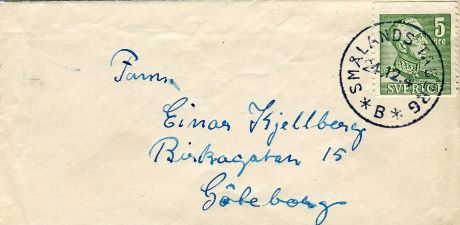 5
öre
SVERIGE
SMÅLANDS TABERG
24.12.
* B *
Fam.
Einar Kjellberg
Birkagatan 15
Göteborg